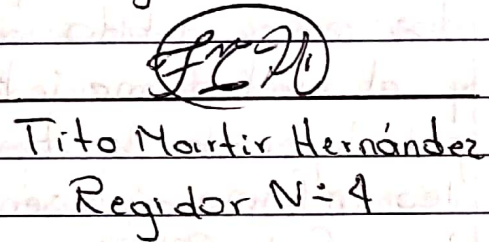 Tito Martir Hernández
Regidor N=4